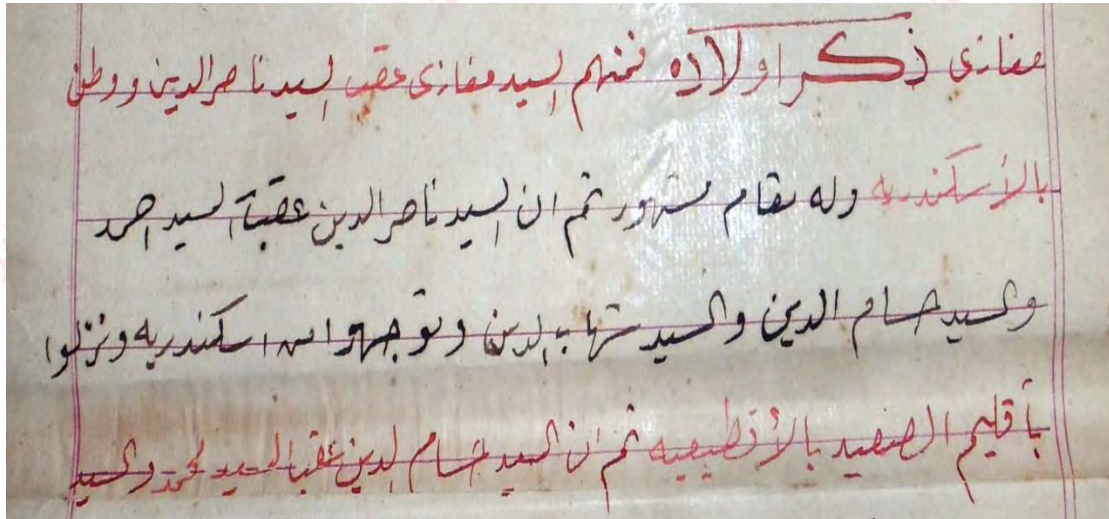 مغازى ذكر اولاده فمنهم السيد مغازى عقب السيد ناصر الدين ووطن
بالأسكندريه وله مقام مشهور ثم ان السيد ناصر الدين عقب السيد احمد
والسيد حسام الدين والسيد شهاب الدين وتوجهوا من اسكندريه ونزلوا
بأقليم الصعيد بالأقطيعيه ثم ان السيد حسام الدين عقب السيد محمد والسيد